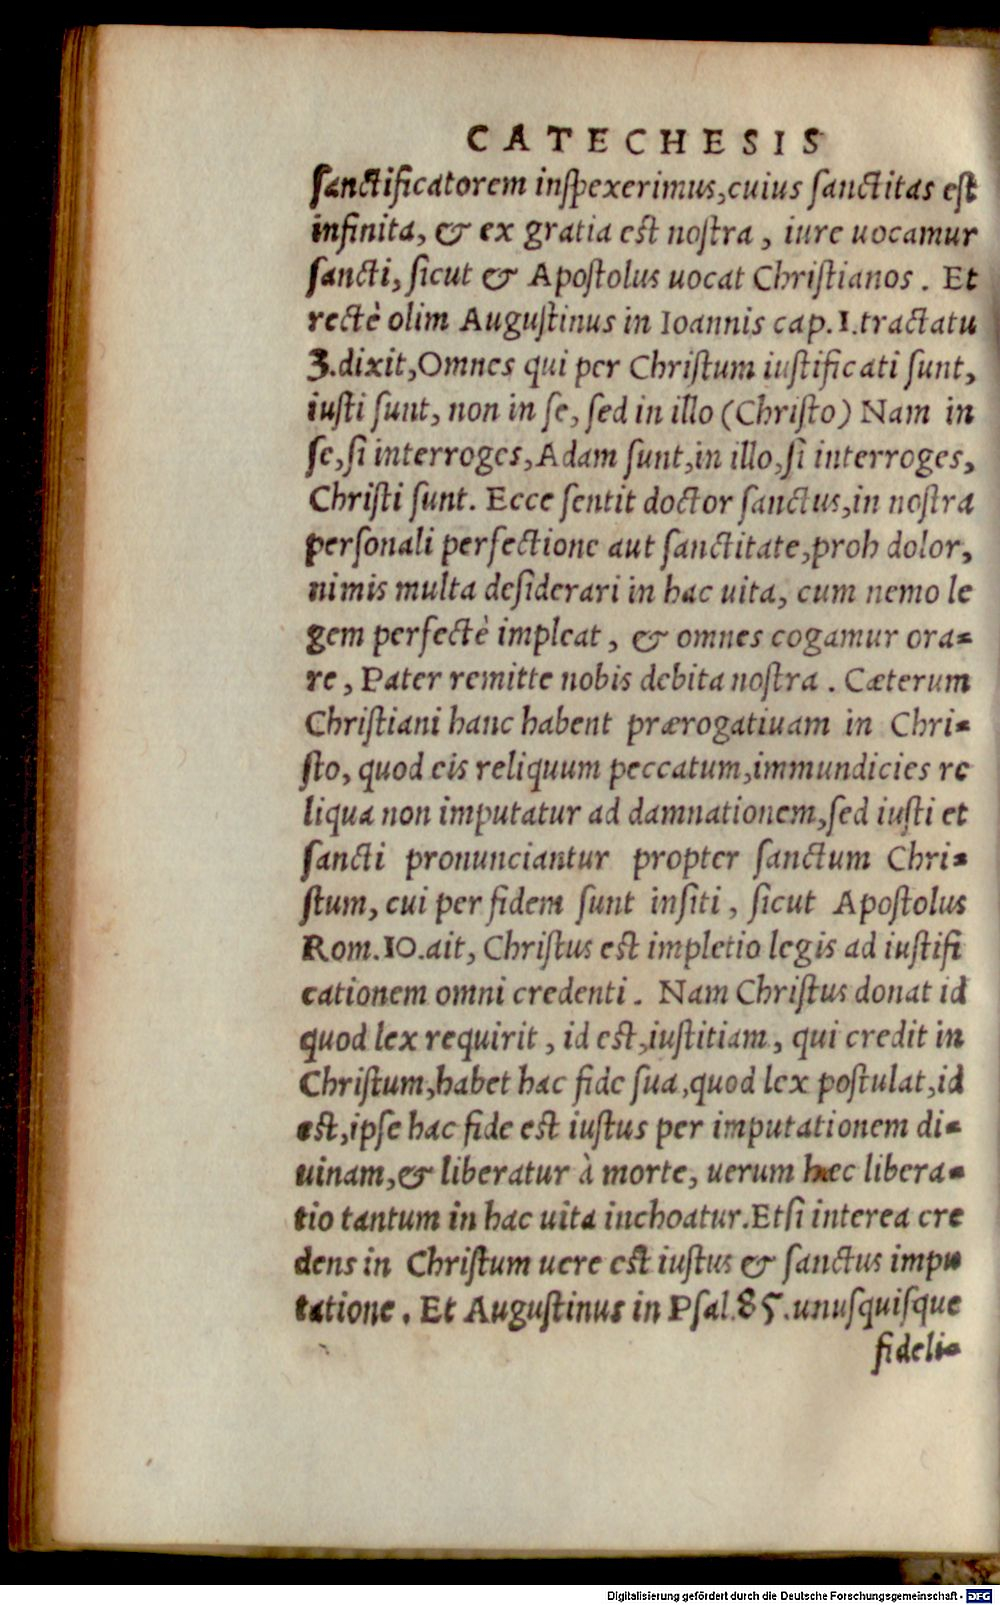 CATECHESIS
sanctificatorem inspexerimus, cuius sanctitas est
infinita, & ex gratia est nostra, iure uocamur
sancti, sicut & Apostolus uocat Christianos. Et
rectè olim Augustinus in Ioannis cap. 1. tractatu
3. dixit, Omnes qui per Christum iustificati sunt,
iusti sunt, non in se, sed in illo (Christo) Nam in
se, si interroges, Adam sunt, in illo, si interroges,
Christi sunt. Ecce sentit doctor sanctus, in nostra
personali perfectione aut sanctitate, proh dolor,
nimis multa desiderari in hac uita, cum nemo le
gem perfectè impleat, & omnes cogamur ora=
re, Pater remitte nobis debita nostra. Cæterum
Christiani hanc habent prærogatiuam in Chri=
sto, quod eis reliquum peccatum, immundicies re
liqua non imputatur ad damnationem, sed iusti et
sancti pronunciantur propter sanctum Chri=
stum, cui per fidem sunt insiti, sicut Apostolus
Rom. 10. ait, Christus est impletio legis ad iustifi
cationem omni credenti. Nam Christus donat id
quod lex requirit, id est, iustitiam, qui credit in
Christum, habet hac fide sua, quod lex postulat, id
est, ipse hac fide est iustus per imputationem di=
uinam, & liberatur à morte, uerum hæc libera=
tio tantum in hac uita inchoatur. Etsi interea cre
dens in Christum uere est iustus & sanctus impu
tatione. Et Augustinus in Psal. 85. unusquisque
fideli=
Digitalisierung gefördert durch die Deutsche Forschungsgemeinschaft - DFG